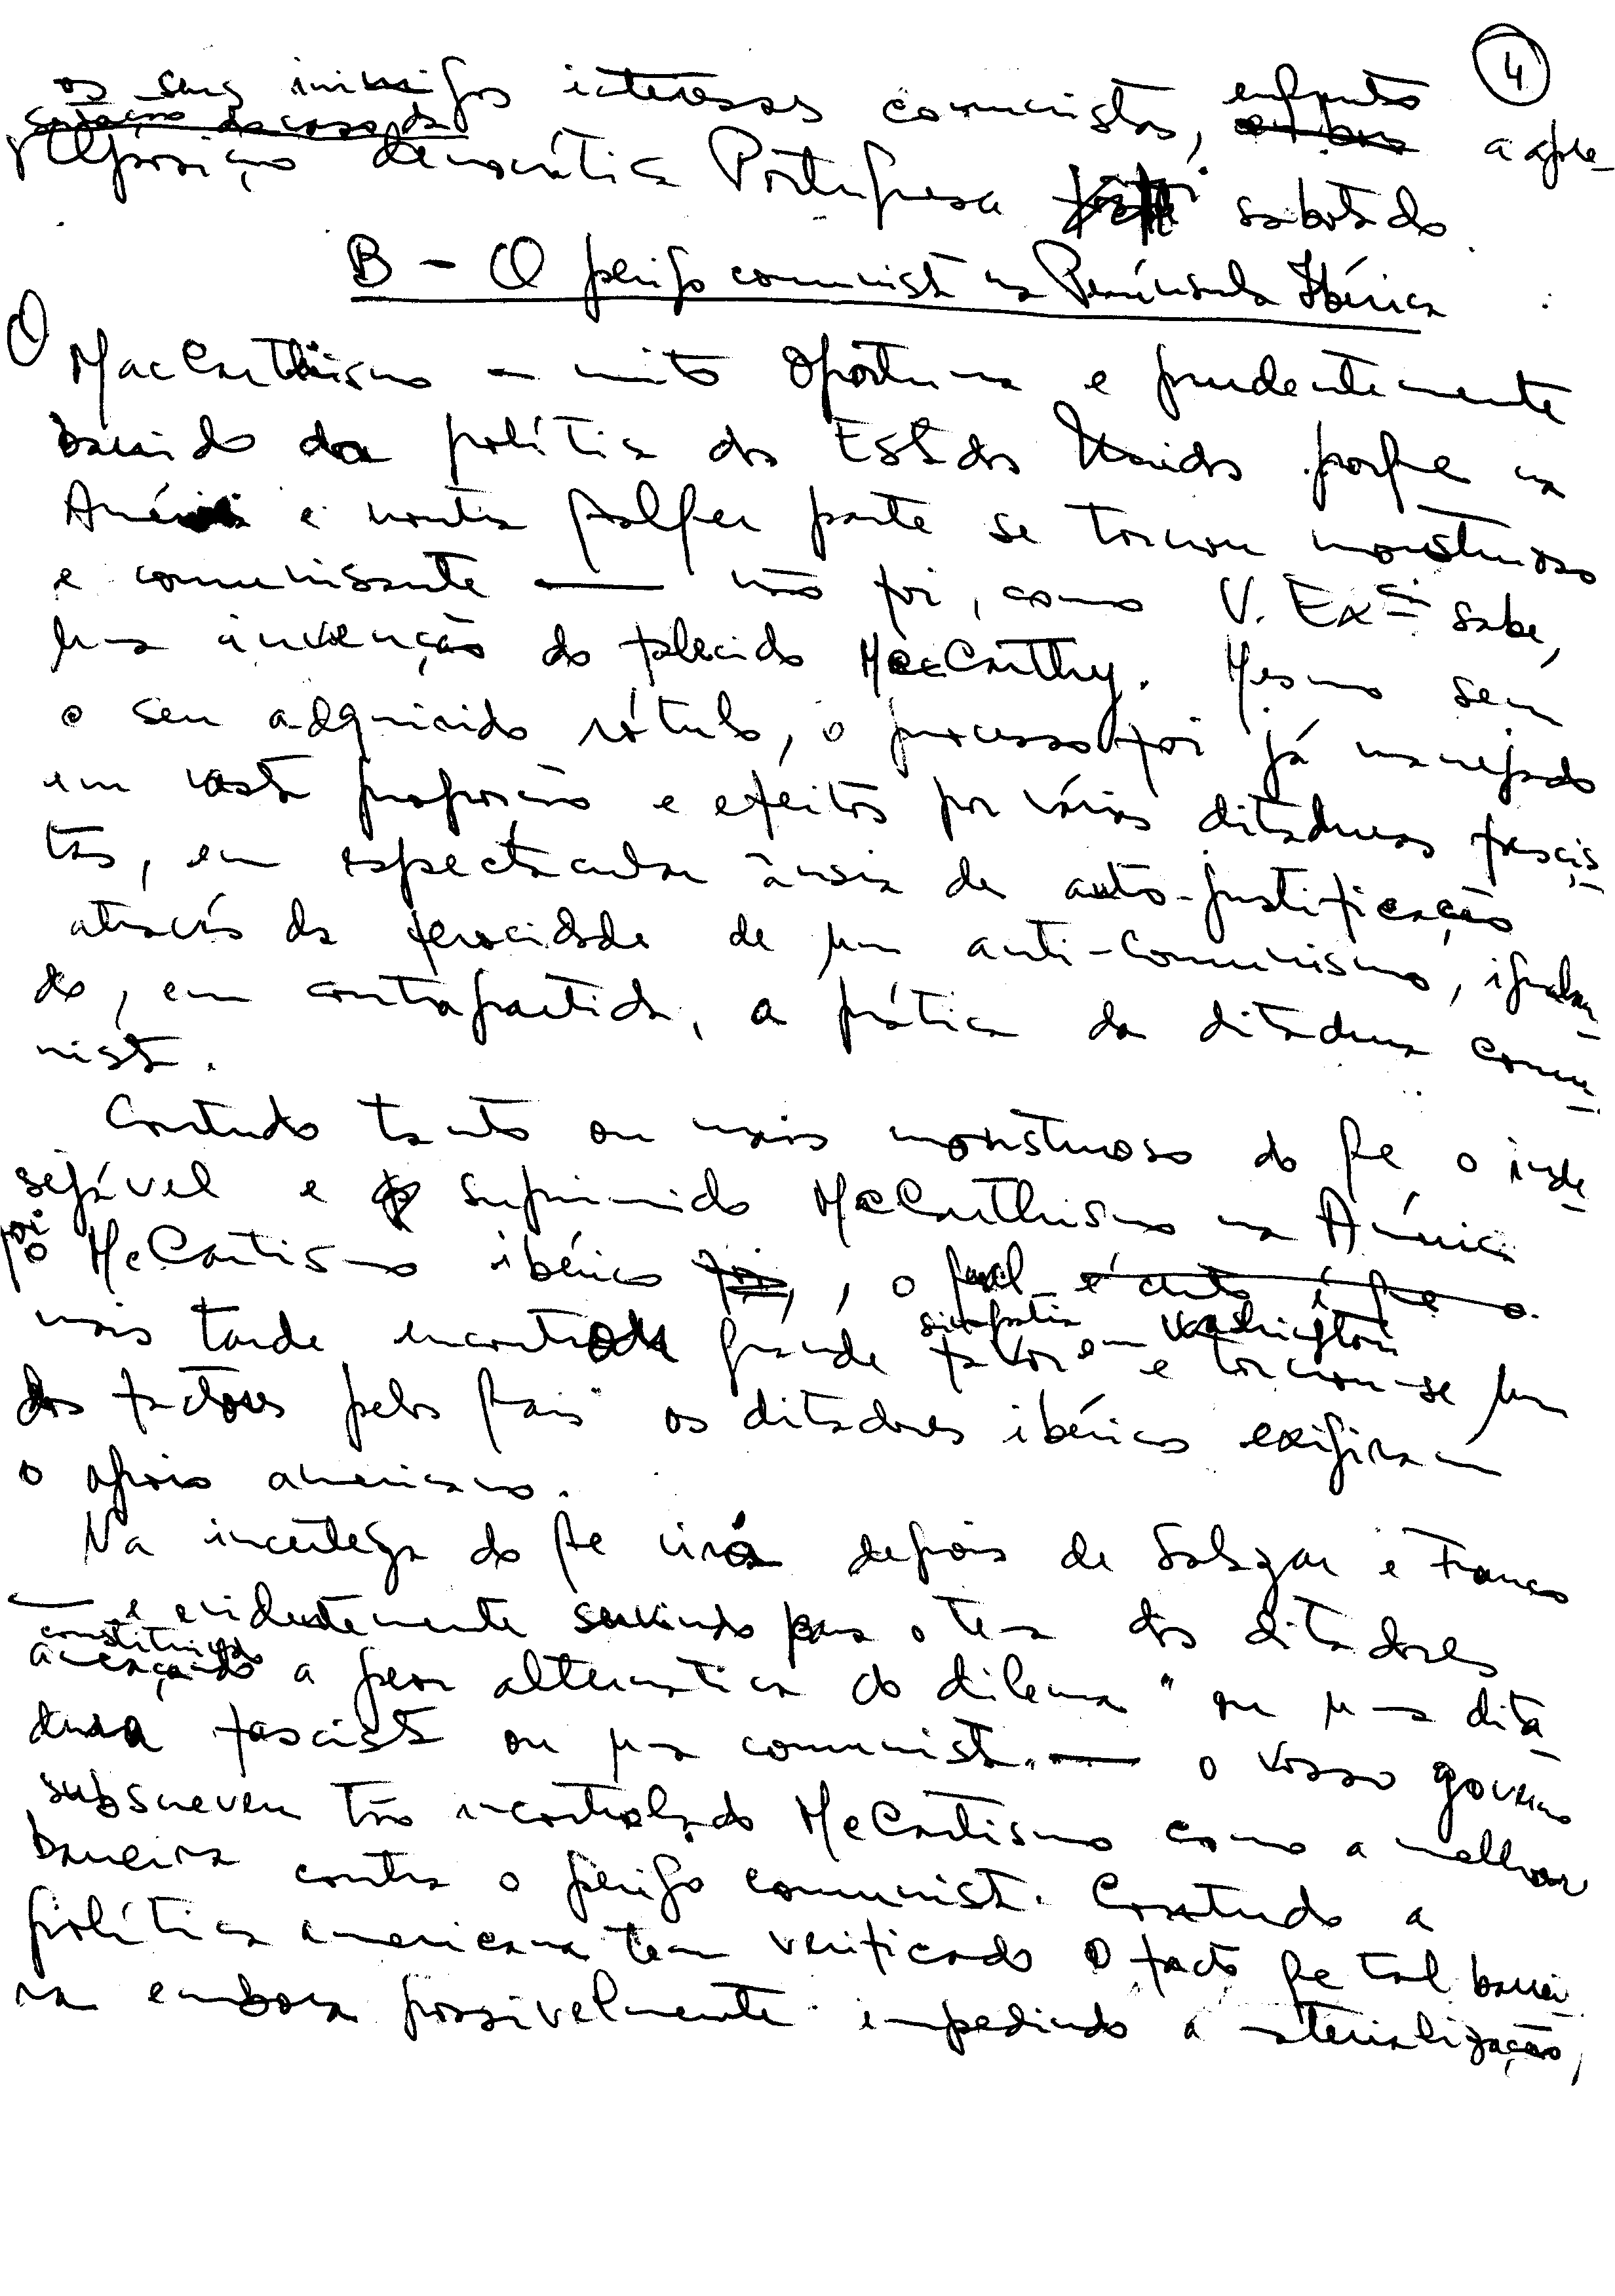 4
os seus inimigos interesses comunistas, enquanto a apre-
sentação do caso da
Oposição democrática Portuguesa foi sabotado.
B - O perigo comunista na Península Ibérica
O MacCarthismo — muito oportuna e prudentemente
banido da política dos Estados Unidos porque na
América e noutra qualquer parte se tornou monstruoso
e comunisante — não foi, como V. Excia sabe,
uma invenção do falecido MacCarthy. Mesmo sem
o seu adquirido rótulo, o processo foi já manejado
em vasta proporção e efeitos por várias ditaduras fascis-
tas, em espectacular ânsia de auto-justificação
através da ferocidade de um anti-comunismo, igualan-
do, em contrapartida, a prática da ditadura comu-
nista.
Contudo tanto ou mais monstruoso do que o inde-
sejável e suprimido MacCarthismo na América
foi o McCartismo ibérico, o qual
mais tarde encontrou grande simpatia favor em Washington e tornou-se um
dos factores pelos quais os ditadores ibéricos exigiram
o apoio americano.
Na incerteza do que virá depois de Salazar e Franco
— e evidentemente servindo para o tema dos ditadores
constituindo
a pior alternativa do dilema "ou uma dita-
dura fascista ou uma comunista" — o vosso governo
subscreveu tão incontrolado McCartismo como a melhor
barreira contra o perigo comunista. Contudo a
política americana tem verificado o facto que tal barrei-
ra embora possivelmente impedindo a materialização,